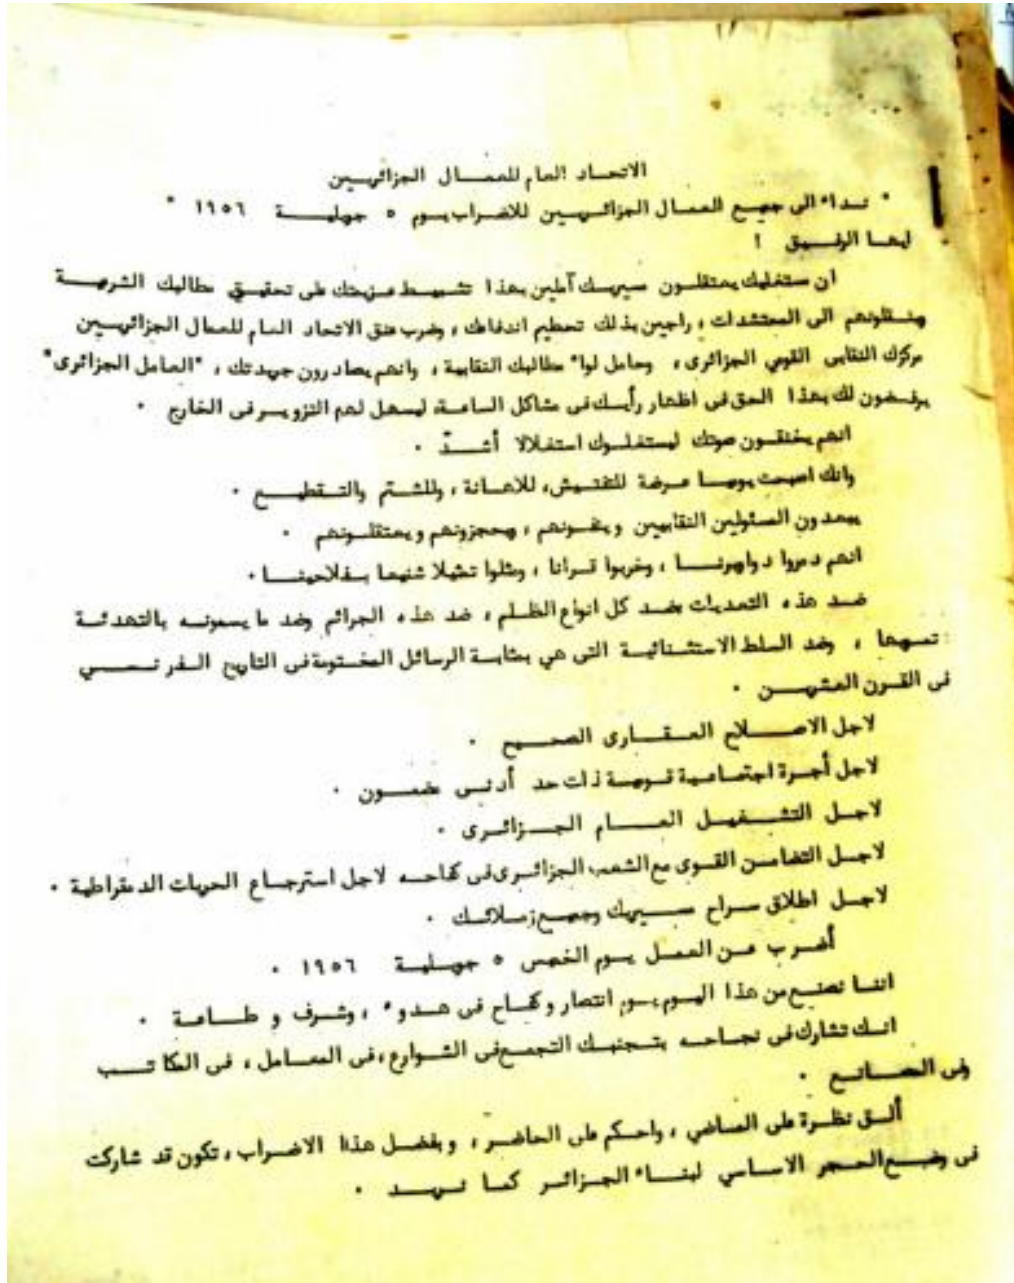 الاتحاد العام للعمال الجزائريين
" نداء الى جميع العمال الجزائريين للاضراب يوم ٥ جويلية ١٩٥٦ "
ايها الرفيق !
ان مستغليك يعتقلون مسيريك آملين بهذا تثبيط عزيمتك على تحقيق مطالبك الشرعية
وينقلونهم الى المحتشدات ، راجين بذلك تحطيم اندفاعك ، وضرب عنق الاتحاد العام للعمال الجزائريين
مركزك النقابى القومي الجزائرى ، وحامل لواء مطالبك النقابية ، وانهم يصادرون جريدتك ، "العامل الجزائرى"
يرفضون لك بهذا الحق فى اظهار رأيك فى مشاكل الساعة، ليسهل لهم التزوير فى الخارج .
انهم يخنقون صوتك ليستغلوك استغلالا أشدّ .
وانك اصبحت يوميا عرضة للتفتيش، للاهانة ، وللشتم والتقطيع .
يبعدون المسئولين النقابيين وينفونهم ، ويحجزونهم ويعتقلونهم .
انهم دمروا دواويرنا ، وخربوا قرانا ، ومثلوا تمثيلا شنيعا بفلاحينا .
ضد هذه التعديات بضد كل انواع الظلم ، ضد هذه الجرائم وضد ما يسمونه بالتهدئة
تمويها ، وضد السلط الاستثنائية التى هي بمثابة الرسائل المختومة فى التاريخ الفرنسي
فى القرن العشرين .
لاجل الاصلاح العقارى الصحيح .
لاجل أجرة اجتماعية قومية ذات حد أدنى مضمون .
لاجل التشغيل العام الجزائرى .
لاجل التضامن القوى مع الشعب الجزائرى فى كفاحه لاجل استرجاع الحريات الدمقراطية .
لاجل اطلاق سراح مسيريك وجميع زملائك .
أضرب عن العمل يوم الخميس ٥ جويلية ١٩٥٦ .
اننا نصنع من هذا اليوم يوم انتصار وكفاح فى هدوء ، وشرف و طاعة .
انك تشارك فى نجاحه بتجنبك التجمع فى الشوارع ، فى المعامل ، فى المكاتب
وفى المصانع .
ألق نظرة على الماضي ، واحكم على الحاضر ، وبفضل هذا الاضراب ، تكون قد شاركت
فى وضع الحجر الاساسي لبناء الجزائر كما نريد .